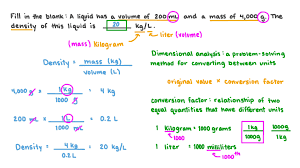 Fill in the blank: A liquid has a volume of 200 mL and a mass of 4,000 g. The
density of this liquid is 20 kg/L.
(mass) kilogram liter (volume)
Density = mass (kg) / volume (L)
4,000 g × 1 kg / 1000 g = 4 kg
200 mL × 1 L / 1000 mL = 0.2 L
Density = 4 kg / 0.2 L = 20 kg/L
Dimensional analysis: a problem-solving
method for converting between units
original value × conversion factor
conversion factor: relationship of two
equal quantities that have different units
1 kilogram = 1000 grams 1 kg / 1000 g 1000 g / 1 kg
1000
1 liter = 1000 milliliters
1000th